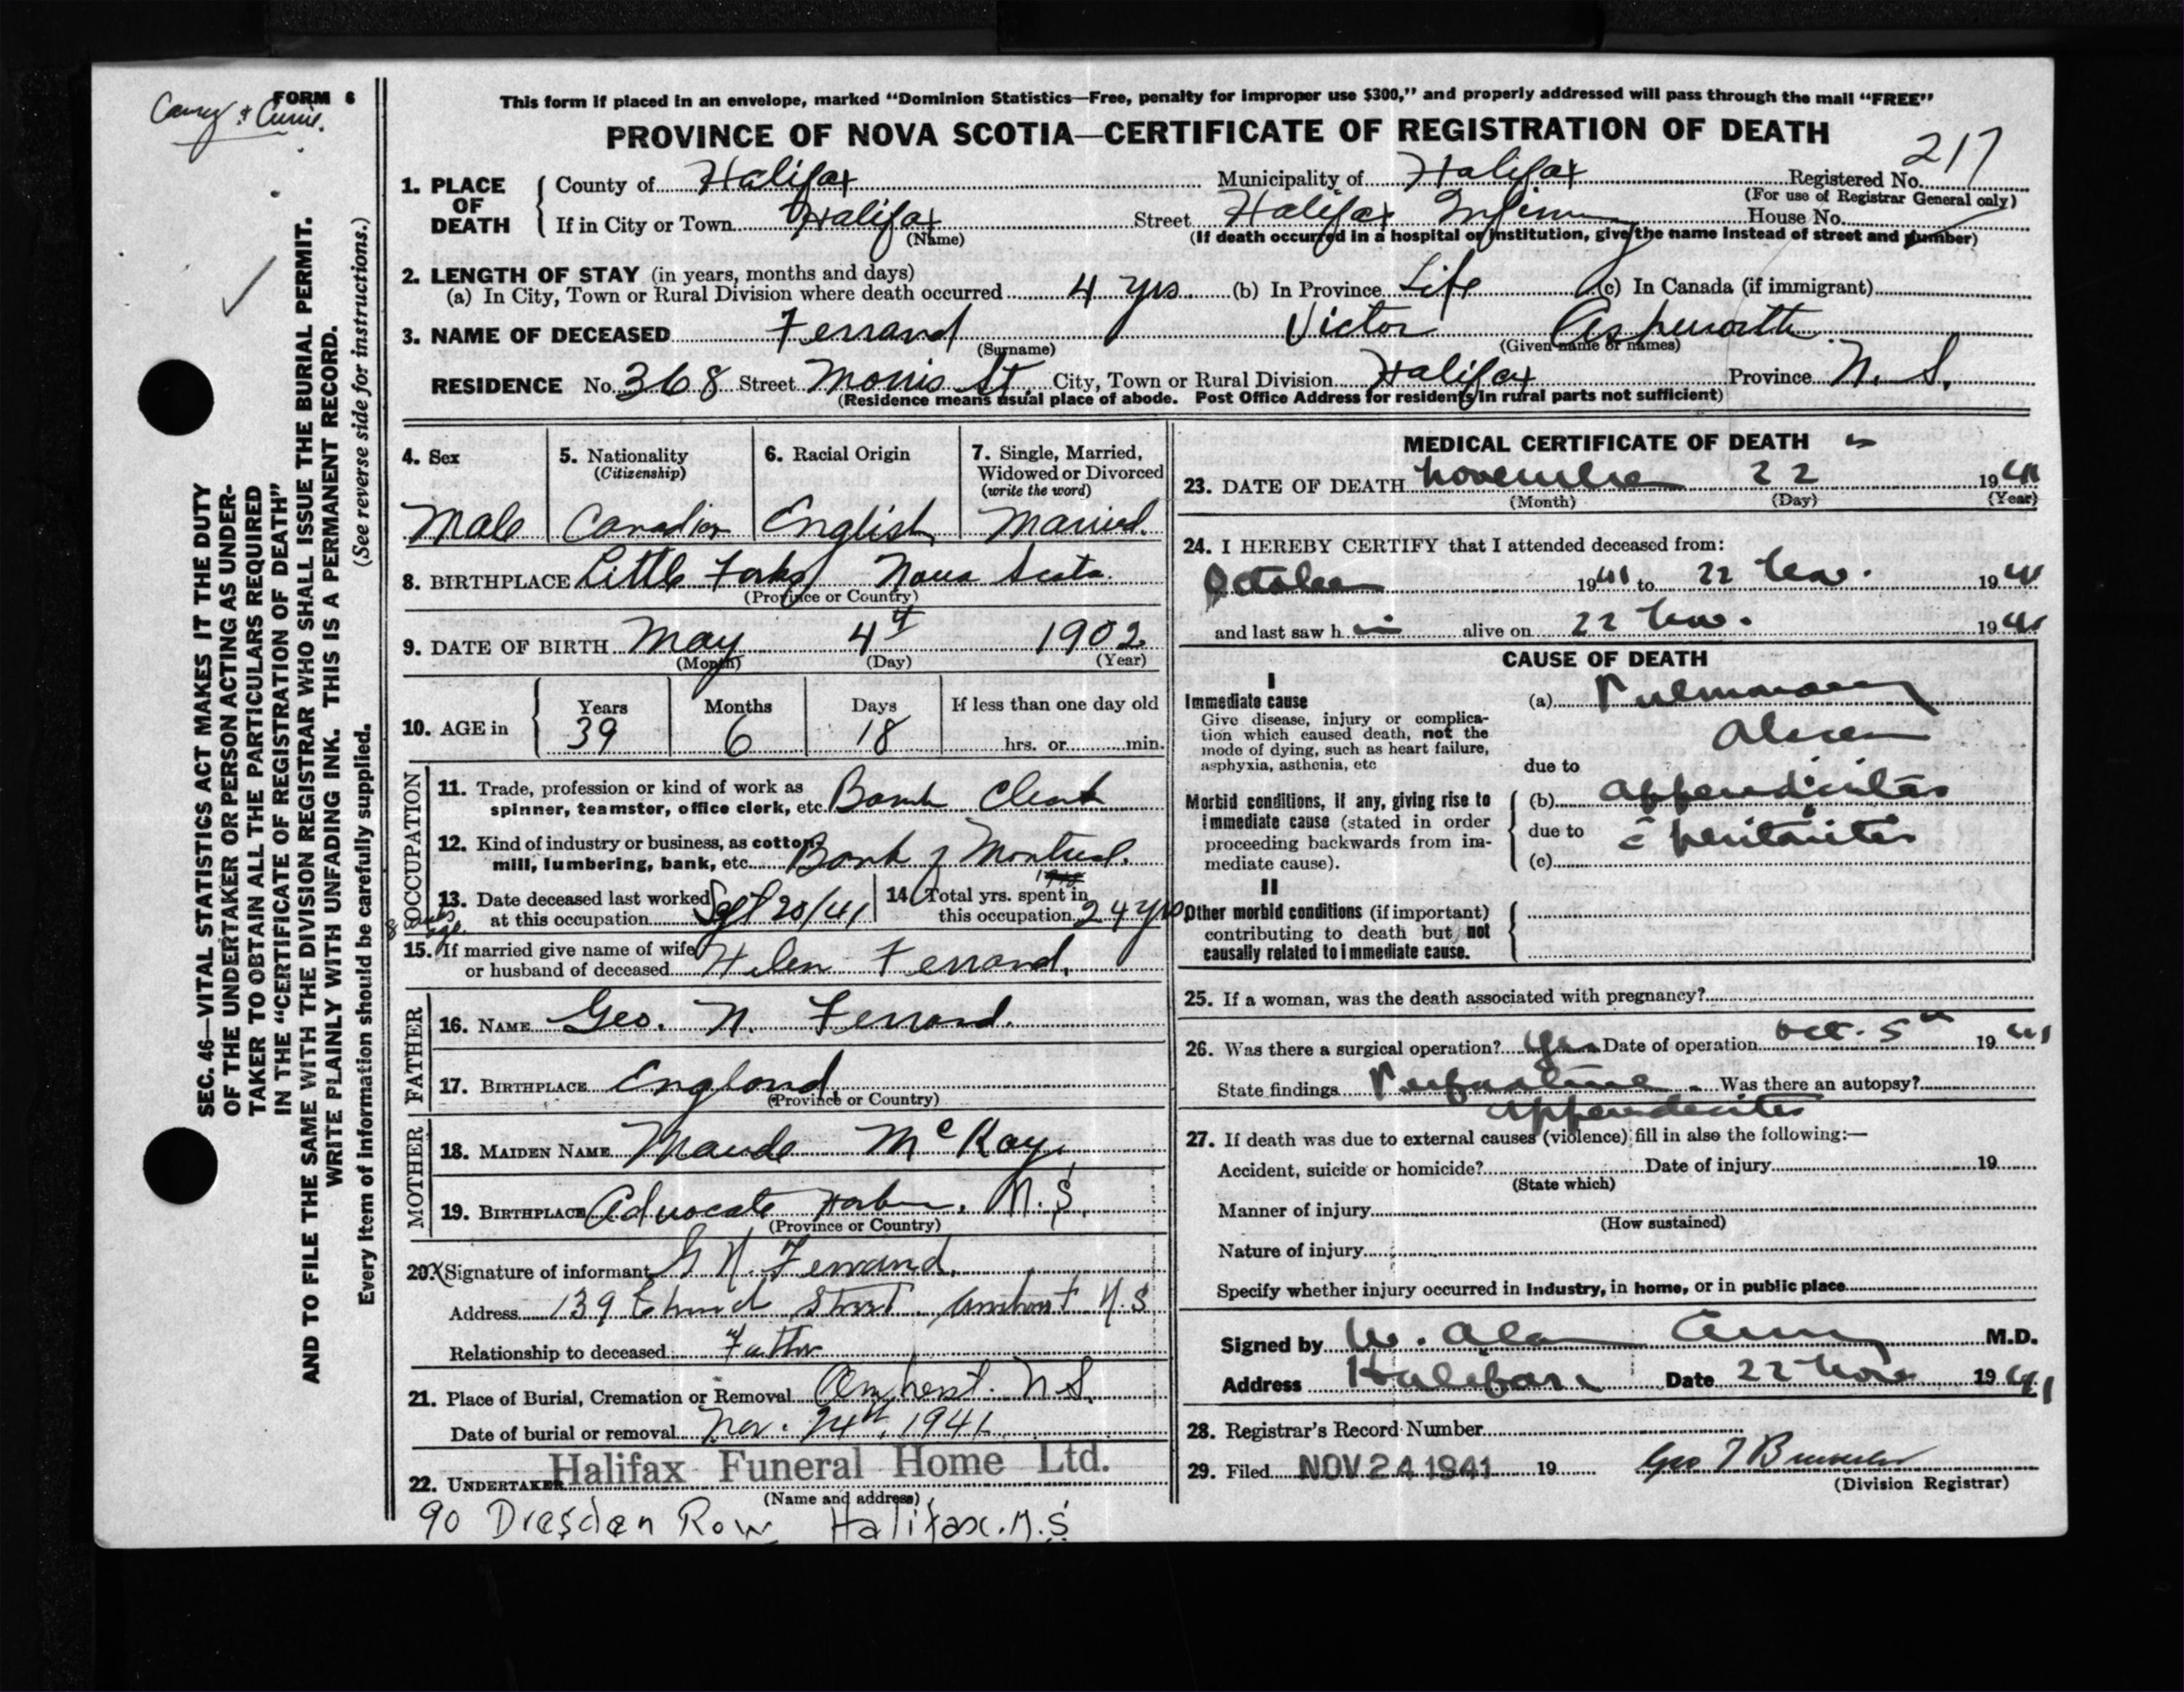 FORM 6
This form if placed in an envelope, marked "Dominion Statistics—Free, penalty for improper use $300," and properly addressed will pass through the mail "FREE"
PROVINCE OF NOVA SCOTIA—CERTIFICATE OF REGISTRATION OF DEATH
217
1. PLACE OF DEATH
County of Halifax Municipality of Halifax Registered No.
(For use of Registrar General only)
If in City or Town Halifax Street Halifax House No.
(Name) (If death occurred in a hospital or institution, give the name instead of street and number)
2. LENGTH OF STAY (in years, months and days)
(a) In City, Town or Rural Division where death occurred 4 yrs (b) In Province Life (c) In Canada (if immigrant)
3. NAME OF DECEASED Ferrand Victor Ashworth
(Surname) (Given name or names)
RESIDENCE No. 368 Street Morris St. City, Town or Rural Division Halifax Province N. S.
(Residence means usual place of abode. Post Office Address for residents in rural parts not sufficient)
SEC. 46—VITAL STATISTICS ACT MAKES IT THE DUTY
OF THE UNDERTAKER OR PERSON ACTING AS UNDER-
TAKER TO OBTAIN ALL THE PARTICULARS REQUIRED
IN THE "CERTIFICATE OF REGISTRATION OF DEATH"
AND TO FILE THE SAME WITH THE DIVISION REGISTRAR WHO SHALL ISSUE THE BURIAL PERMIT.
WRITE PLAINLY WITH UNFADING INK. THIS IS A PERMANENT RECORD.
Every item of information should be carefully supplied. (See reverse side for instructions.)
4. Sex 5. Nationality 6. Racial Origin 7. Single, Married,
(Citizenship) Widowed or Divorced
(write the word)
Male Canadian English Married.
8. BIRTHPLACE Little Forks Nova Scotia
(Province or Country)
9. DATE OF BIRTH May 4th 1902
(Month) (Day) (Year)
Years Months Days If less than one day old
10. AGE in 39 6 18 hrs. or min.
OCCUPATION
11. Trade, profession or kind of work as
spinner, teamster, office clerk, etc. Bank Clerk
12. Kind of industry or business, as cotton-
mill, lumbering, bank, etc. Bank of Montreal.
13. Date deceased last worked
at this occupation Sept 20/41
14. Total yrs. spent in
this occupation 24 yrs
15. If married give name of wife
or husband of deceased Helen Ferrand.
FATHER
16. NAME Geo. N. Ferrand.
17. BIRTHPLACE England
(Province or Country)
MOTHER
18. MAIDEN NAME Maude McKay
19. BIRTHPLACE Advocate Harbor. N.S.
(Province or Country)
20. Signature of informant G N. Ferrand.
Address 139 Church Street Amherst N.S
Relationship to deceased Father
21. Place of Burial, Cremation or Removal Amherst. N S.
Date of burial or removal Nov. 24th, 1941
22. UNDERTAKER Halifax Funeral Home Ltd.
(Name and address)
90 Dresden Row Halifax. N.S
MEDICAL CERTIFICATE OF DEATH
23. DATE OF DEATH November 22 1941
(Month) (Day) (Year)
24. I HEREBY CERTIFY that I attended deceased from:
October 1941 to 22 Nov. 1941
and last saw him alive on 22 Nov. 1941
CAUSE OF DEATH
I
Immediate cause
Give disease, injury or complica-
tion which caused death, not the
mode of dying, such as heart failure,
asphyxia, asthenia, etc
(a) Pulmonary
due to
Morbid conditions, if any, giving rise to
immediate cause (stated in order
proceeding backwards from im-
mediate cause).
(b) appendicitis
due to c̄ peritonitis
(c)
II
Other morbid conditions (if important)
contributing to death but not
causally related to immediate cause.
25. If a woman, was the death associated with pregnancy?
26. Was there a surgical operation? Yes Date of operation Oct. 5th 1941
State findings Was there an autopsy?
appendicitis
27. If death was due to external causes (violence) fill in also the following:—
Accident, suicide or homicide? Date of injury 19
(State which)
Manner of injury
(How sustained)
Nature of injury
Specify whether injury occurred in industry, in home, or in public place
Signed by M.D.
Address Halifax Date 22 Nov 1941
28. Registrar's Record Number
29. Filed NOV 24 1941 19
(Division Registrar)